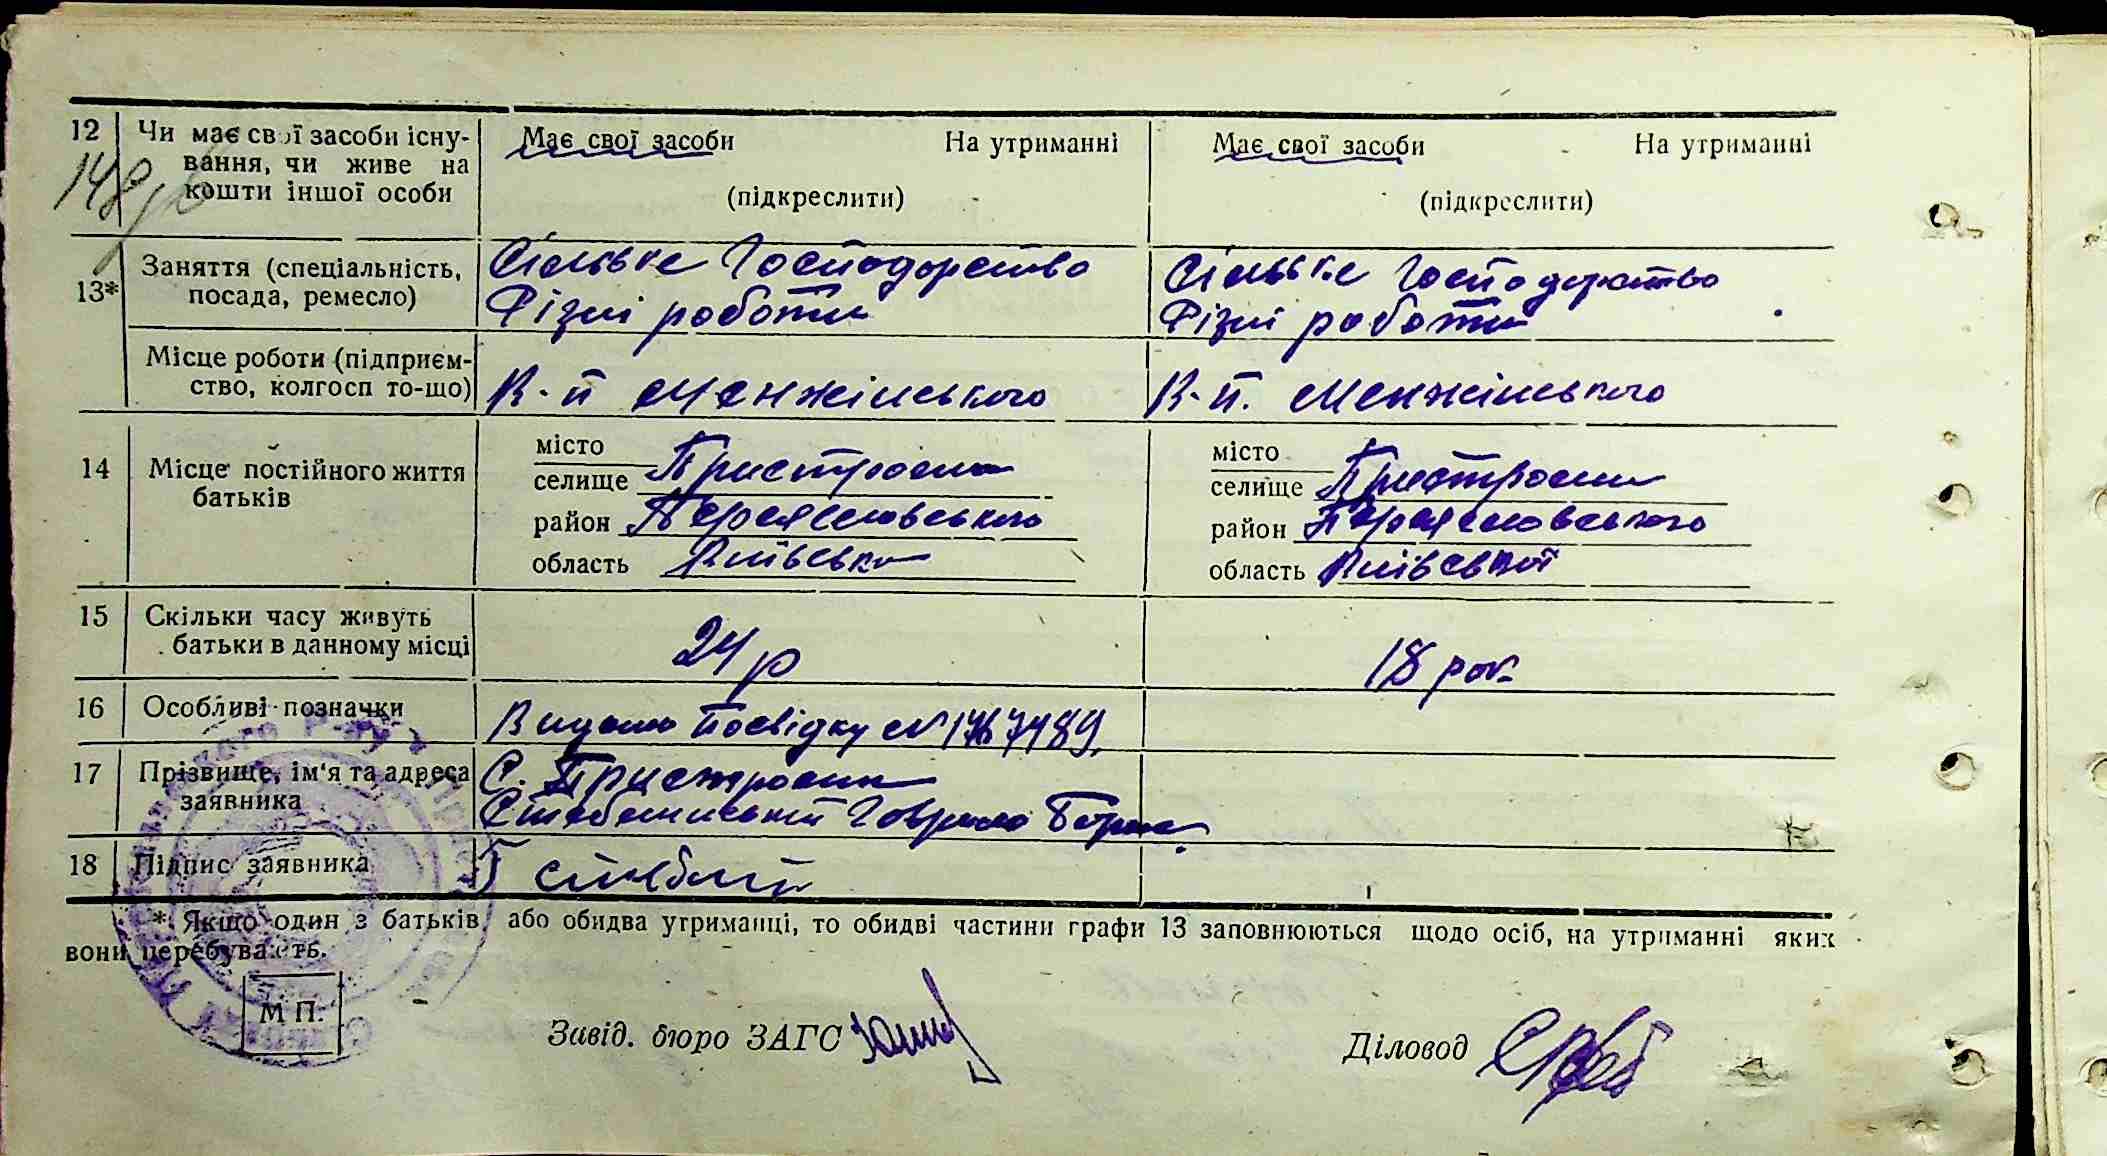 12 Чи має свої засоби існу- Має свої засоби На утриманні Має свої засоби На утриманні
вання, чи живе на
кошти іншої особи (підкреслити) (підкреслити)
148
13* Заняття (спеціальність, Сільське Господарство Сільське Господарство
посада, ремесло) Різні роботи Різні роботи
Місце роботи (підприєм-
ство, колгосп то-що) К-п Менжінського К-п. Менжінського
14 Місце постійного життя місто місто
батьків селище Пристроми селище Пристроми
район Переяславського район Переяславського
область Київська область Київської
15 Скільки часу живуть
батьки в данному місці 24 р 18 рок.
16 Особливі позначки Видано посвідку № 1767489
17 Прізвище, ім'я та адреса С. Пристроми
заявника Гаврило
18 Підпис заявника
* Якщо один з батьків або обидва утриманці, то обидві частини графи 13 заповнюються щодо осіб, на утриманні яких
вони перебувають.
М П.
Завід. бюро ЗАГС Діловод